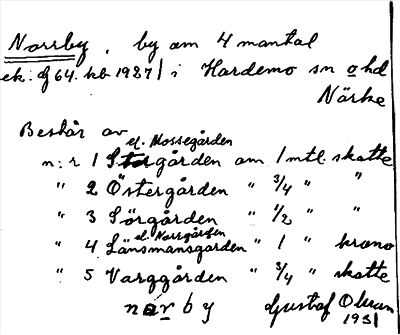 Norrby, by om 4 mantal
ek: bl 64. kb 1927/ i Hardemo sn o hd
Närke
Består av
el. Mossegården
n:r 1 Storgården om 1 mtl skatte
" 2 Östergården " 3/4 " "
" 3 Sörgården " 1/2 " "
el. Norrgården
" 4 Länsmansgården " 1 " krono
" 5 Varggården " 3/4 " skatte
norby Gustaf Olsson
1931